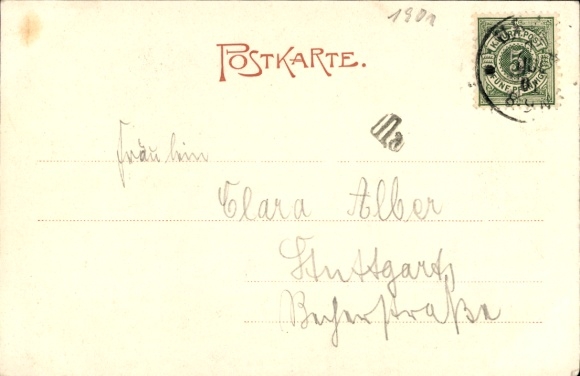 1901
POSTKARTE.
K. WÜRTT. POST
5
FÜNF PFENNIG
Fräulein
Clara Alber
Stuttgart
Becherstraße